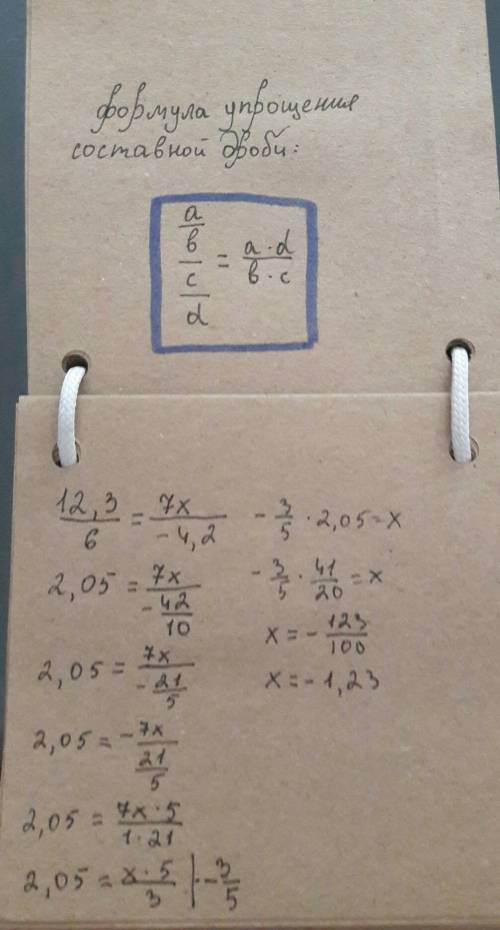 формула упрощения
составной дроби:
a/b / c/d = a·d / b·c
12,3/6 = 7x/-4,2
2,05 = 7x / -42/10
2,05 = 7x / -21/5
2,05 = -7x / 21/5
2,05 = 7x·5 / 1·21
2,05 = x·5 / 3 | ·-3/5
-3/5 · 2,05 = x
-3/5 · 41/20 = x
x = -123/100
x = -1,23